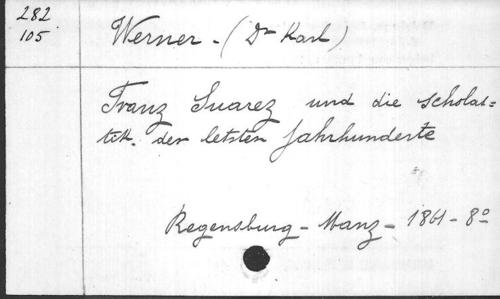 282
105
Werner - (Dr Karl)
Franz Suarez und die Scholas=
tik. der letsten Jahrhunderte
Regensburg - Manz - 1861 - 8º